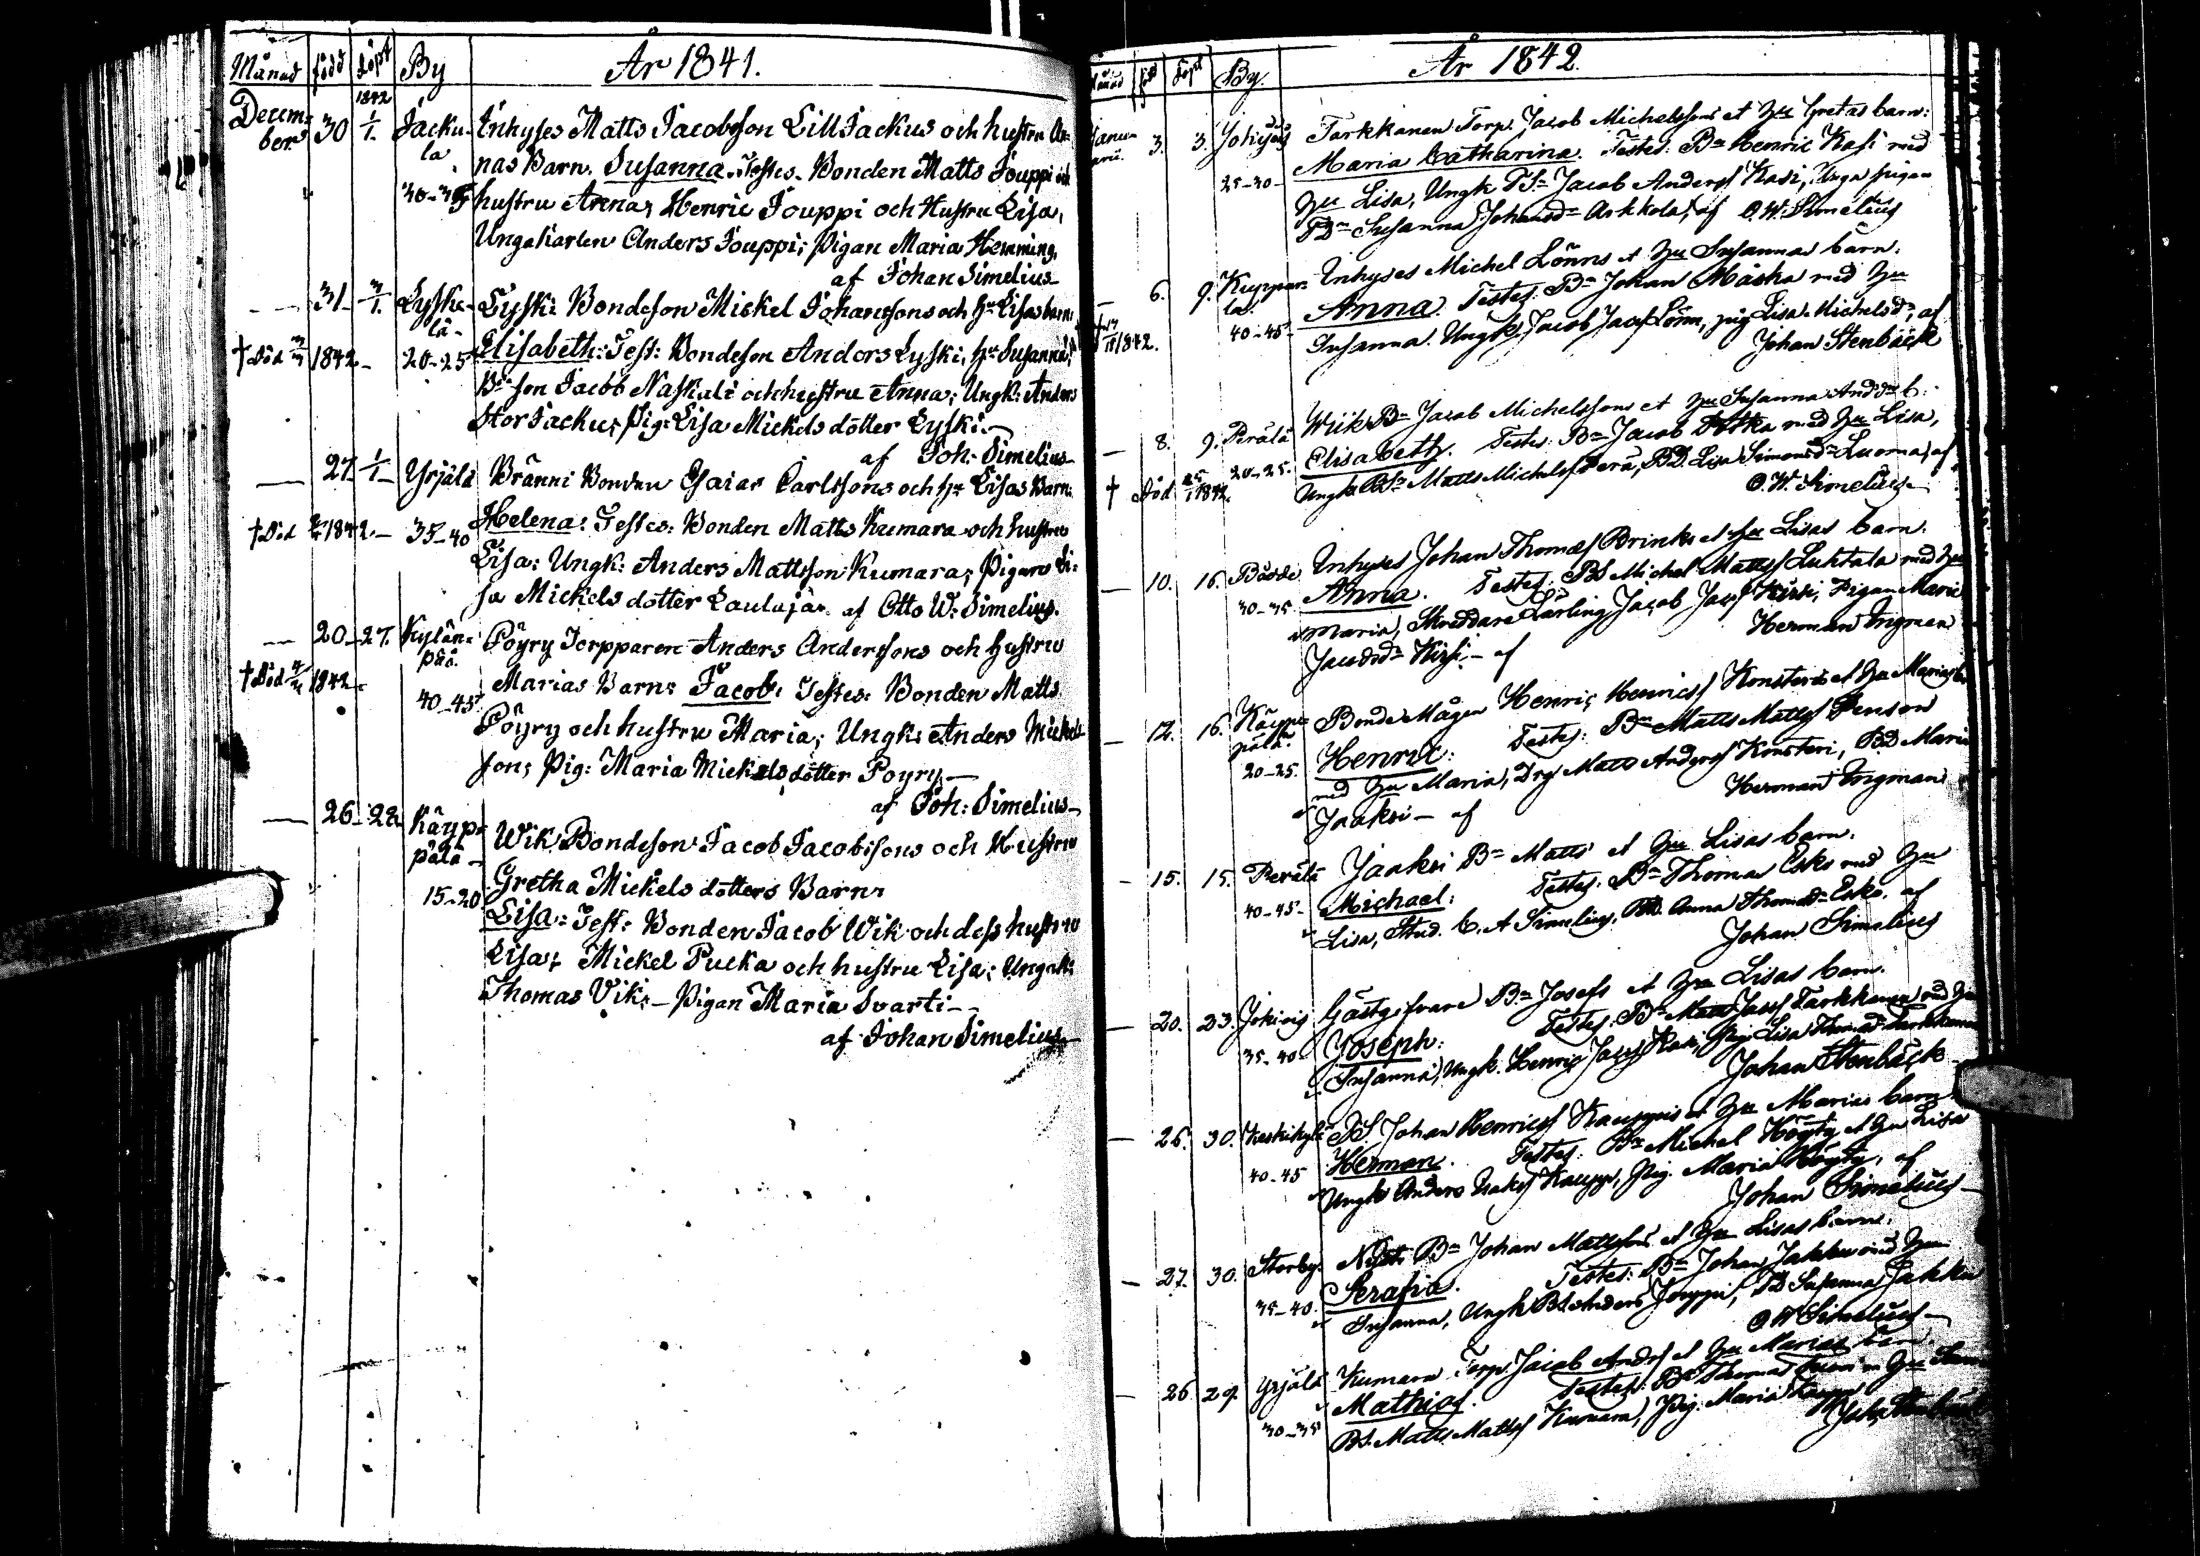 Månad född döpt By År 1841.
Decem- 30 1842 1/1. Jacku- Inhyses Matts Jacobsson LillJackus och hustru An-
ber la nas Barn. Susanna. Testes. Bonden Matts Jouppi och
30-35 hustru Anna; Henric Jouppi och Hustru Lisa;
Ungakarlen Anders Jouppi; Pigan Maria Hemming.
af Johan Simelius
— 31 3/1. Lyske- Lyski Bondeson Mickel Johanssons och Hu Lisas barn
lä
† död 1842 20-25 Elisabeth: Test: Bondeson Anders Lyski, Hu Susanna;
Bdeson Jacob Naskali och hustru Anna; Ungk: Anders
StorJackus; Pig: Lisa Mickels dotter Lyski.
af Joh: Simelius
— 27 1/1 Yrjälä Bränni Bonden Esaias Carlssons och Hu Lisas Barn
† död 1842 35-40 Helena: Testes: Bonden Matts Kumara och hustru
Lisa: Ungk: Anders Mattsson Kumara; Pigan Li-
sa Mickels dotter Laulaja. af Otto W: Simelius.
— 20 27. Kylän- Pöyry Torpparen Anders Anderssons och Hustru
pää.
† död 1842 40-45 Marias Barn: Jacob: Testes: Bonden Matts
Pöyry och hustru Maria; Ungk: Anders Mickels-
son; Pig: Maria Mickels dotter Pöyry.
af Joh: Simelius
— 26 28 Käyp- Wik Bondeson Jacob Jacobssons och Hustru
pälä
15-20 Gretha Mickels dotters Barn:
Lisa: Test: Bonden Jacob Wik och dess hustru
Lisa; Mickel Pucka och hustru Lisa; Ungk:
Thomas Vik; Pigan Maria Svarti
af Johan Simelius
Månad föd Döpt By. År 1842.
Janu- 3. 3. Tarkkanen Torp. Jacob Michelssons et Hu Gretas barn:
arii. 25-30 Maria Catharina. Testes: Bn Henric Kasi med
Hu Lisa, Ungk Jacob Anderss Kasi, Unga pigan
Susanna Johansdr Arkkola, af O. W. Simelius
— 6. 9. Kuppar- Inhyses Michel Lönns et Hu Susannas barn.
la. Anna. Testes: Bn Johan Måska med Hu
1842. 40-45 Susanna. Ungk. Jacob Jacss Lönn, pig Lisa Michelsdr, af
Johan Stenbäck
— 8. 9. Perälä Wiik Bn Jacob Michelssons et Hu Susanna Andsdr b.
20-25. Elisabeth. Testes: Bn Jacob med Hu Lisa,
† död 1842. Ungk. Matts Michelss Perä, BD. Lisa Simonsdr Luoma, af
O. W. Simelius
— 10. 16. Inhyses Johan Thomass Brinks et Hu Lisas barn.
30-35 Anna. Testes: BS Michel Mattss Luhtala med Hu
Maria, Skreddare Lärling Jacob Jacss Kirsi, Pigan Maria
Jacobsdr Kirsi — af Herman Ingman
— 12. 16. Käyp- Bonde Mågen Henric Henricss Konsteris et Hu Marias b.
pälä. Henric: Testes: Bn Matts Mattss Penson
20-25. med Hu Maria, Drg Matts Anderss Konsteri, BD. Maria
Jaakri — af Herman Ingman
— 15. 15. Perälä Jaakri Bn Matts et Hu Lisas barn.
40-45 Michael: Testes: Bn Thomas Esko med Hu
Lisa, Stud. C. A Simelius, BD. Anna Thomasdr Esko. af
Johan Simelius
— 20. 23. Gästgifvare Bn Josefs et Hu Lisas barn.
35-40 Joseph: Testes: Bn Matts Jacss Tarkkanen med Hu
Susanna, Ungk. Henric Jacss Kasi, Pig. Lisa Thomasdr Tarkkanen
Johan Stenbäck
— 26. 30. Keskikylä BS. Johan Henricss Kauppis et Hu Marias barn
40-45 Herman. Testes: Bn Michel Höyty et Hu Lisa
Ungk Anders Isakss Kauppi, Pig. Maria Höyty, af
Johan Simelius
— 27. 30. Storby. Bn Johan Mattssons et Hu Lisas barn.
35-40. Serafia. Testes: Bn Johan Jakku med Hu
Susanna, Ungk BS Anders Jouppi, BD Susanna Jakku
O W Simelius
— 26 29. Yrjälä Kumara Torp. Jacob Andss et Hu Marias barn.
30-35 Mathias. Testes: Bn Thomas Hu
BS. Matts Mattss Kumara, Pig. Maria